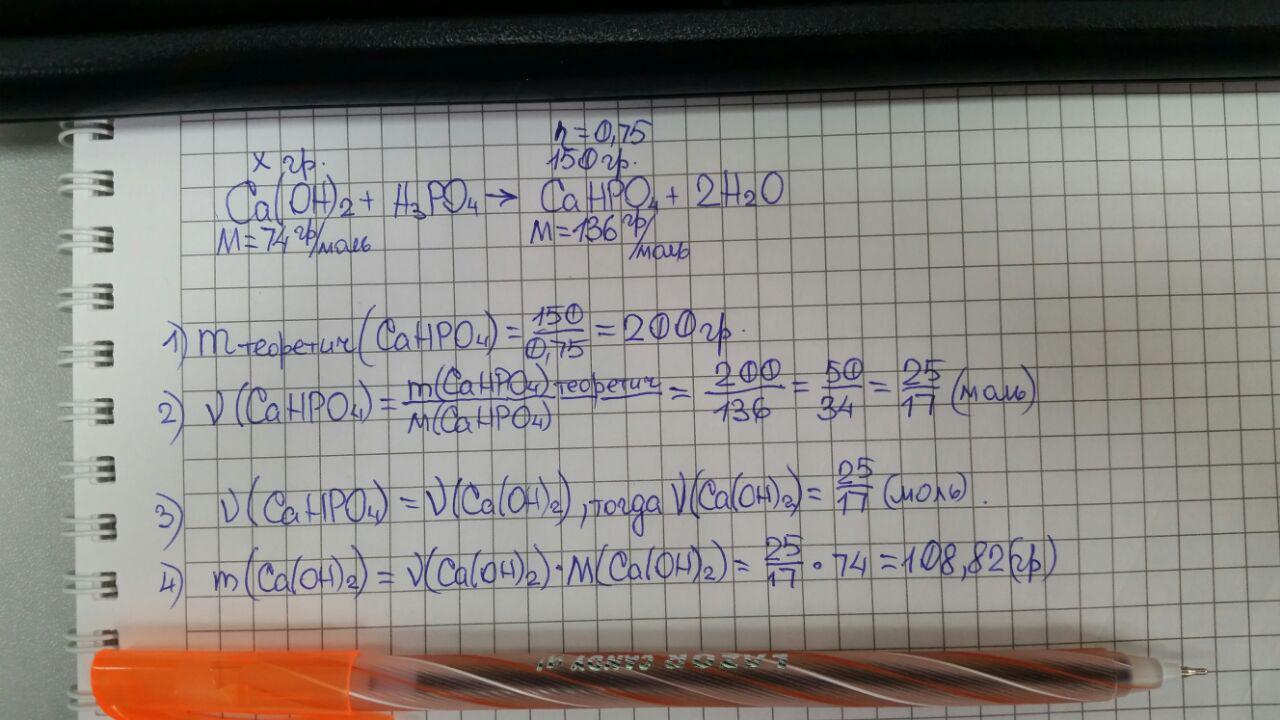 η=0,75
x гр.
150гр.
Ca(OH)₂ + H₃PO₄ → CaHPO₄ + 2H₂O
M=74 гр/моль
M=136 гр/моль
1) m теоретич(CaHPO₄) = 150/0,75 = 200гр.
2) ν(CaHPO₄) = m(CaHPO₄) теоретич/M(CaHPO₄) = 200/136 = 50/34 = 25/17 (моль)
3) ν(CaHPO₄) = ν(Ca(OH)₂), тогда ν(Ca(OH)₂) = 25/17 (моль).
4) m(Ca(OH)₂) = ν(Ca(OH)₂)·M(Ca(OH)₂) = 25/17 · 74 = 108,82(гр)
LAZOR CANDY